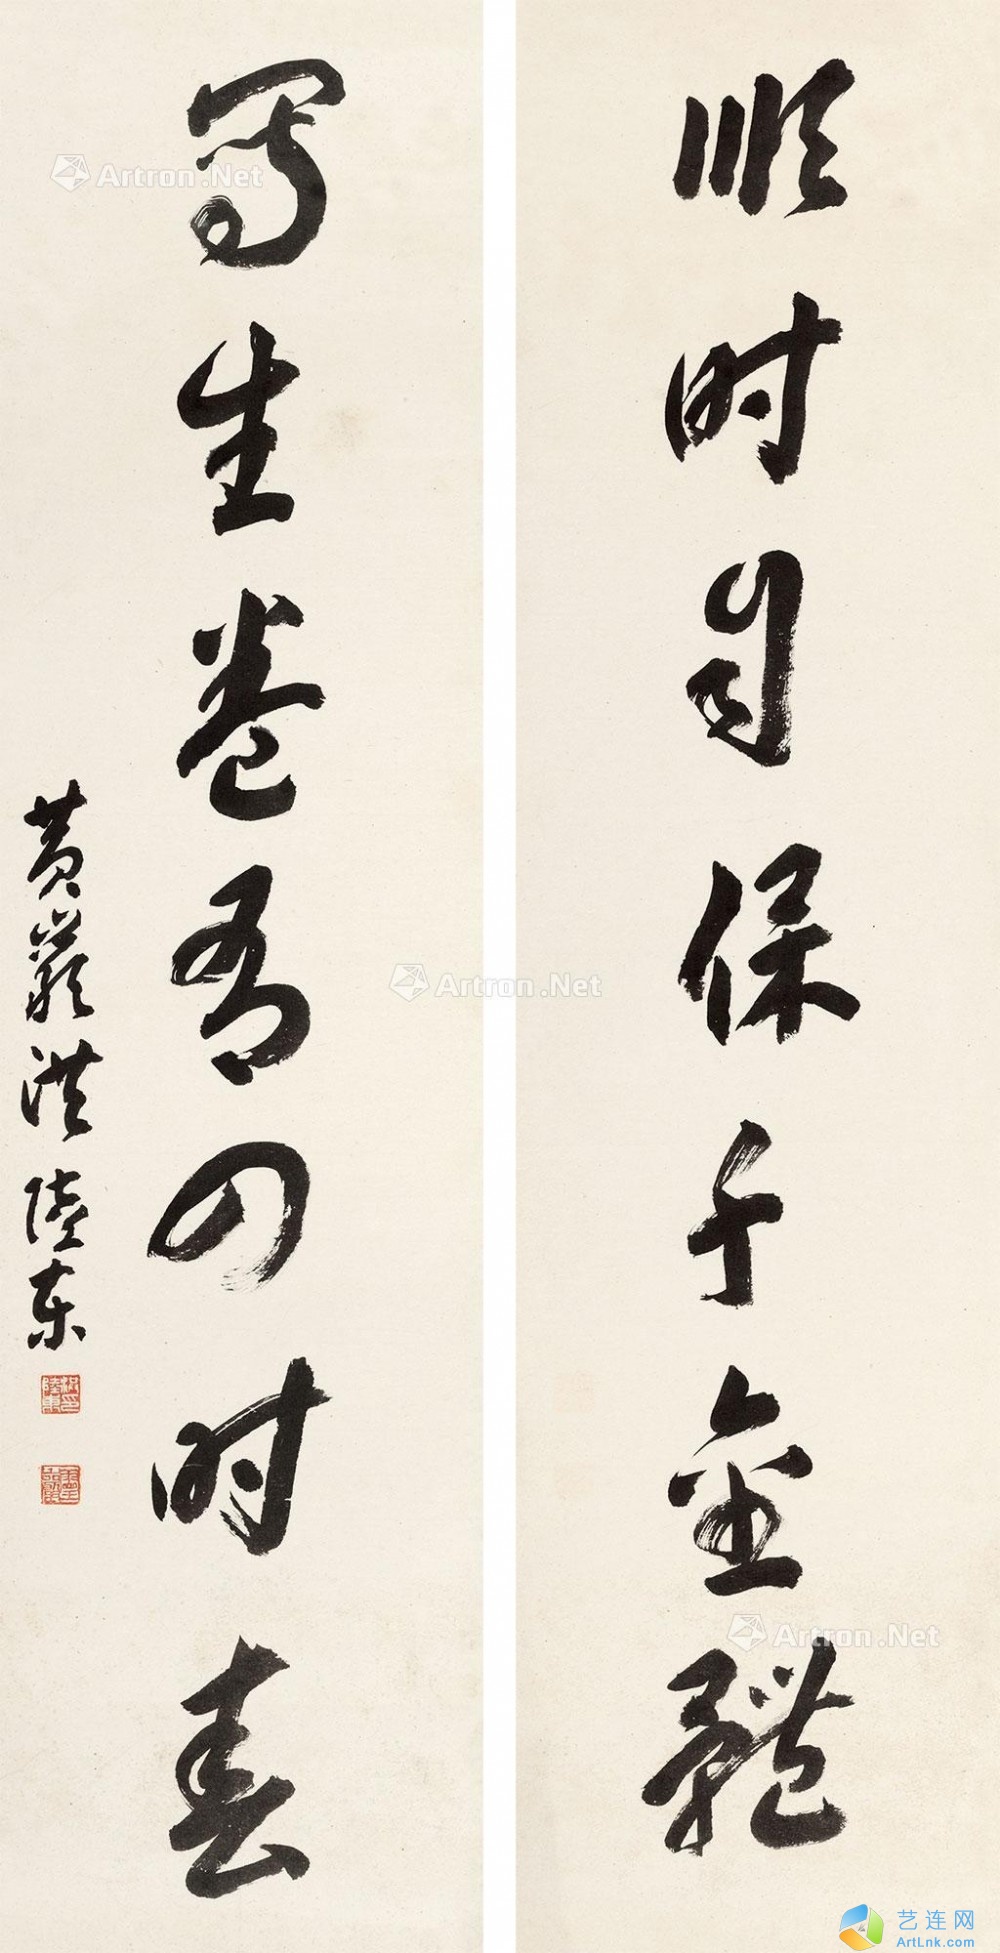 順時自保千金體
寫生卷有四時春
黃巖洪陸東
Artron.Net
Artron.Net
Artron.Net
艺连网
ArtLnk.com